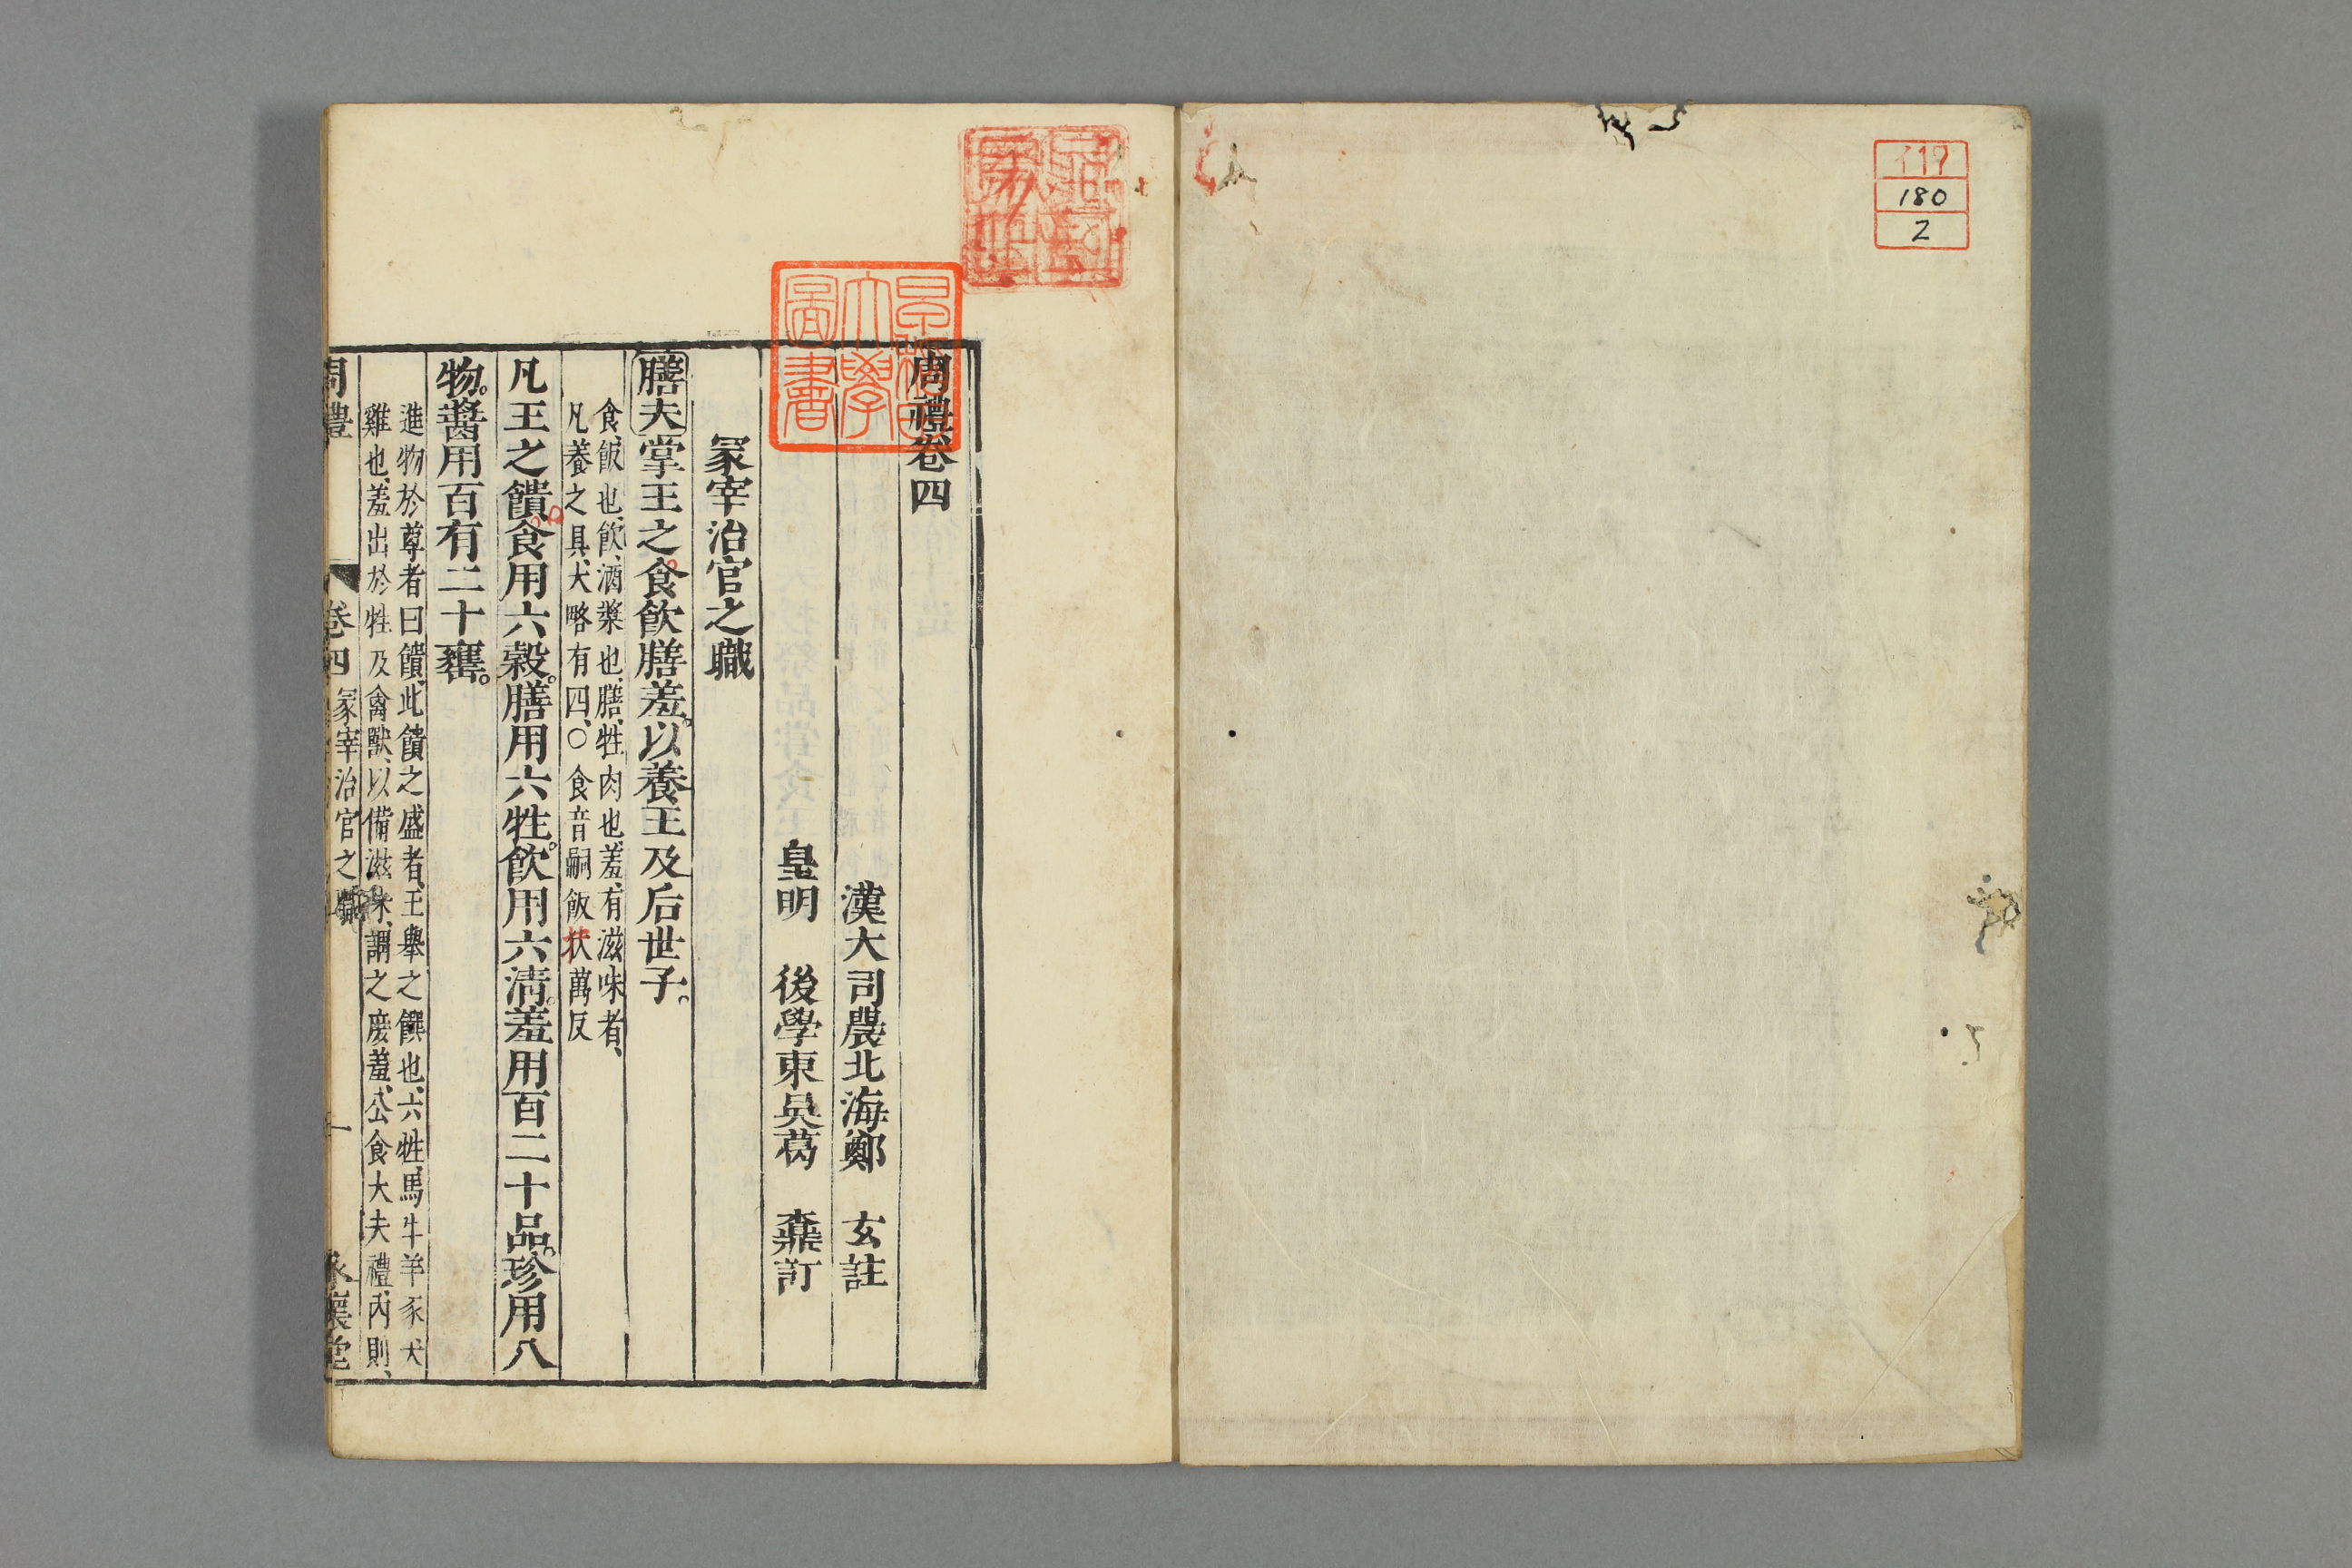 117
180
2
周禮卷四
漢大司農北海鄭　玄註
皇明　後學東吳葛　鼒訂
冢宰治官之職
膳夫掌王之食飲膳羞。以養王及后世子。
食、飯也、飲、酒漿也、膳、牲肉也、羞、有滋味者、
凡養之具、大略有四、○食音嗣飯扶萬反
凡王之饋食用六穀。膳用六牲。飲用六清。羞用百二十品。珍用八
物。醬用百有二十罋。
進物於尊者曰饋、此饋之盛者、王舉之饌也、六牲、馬牛羊豕犬
雞也、羞出於牲及禽獸、以備滋味、謂之庶羞、公食大夫禮、內則、
周禮　卷四　冢宰治官之職　一　永懷堂